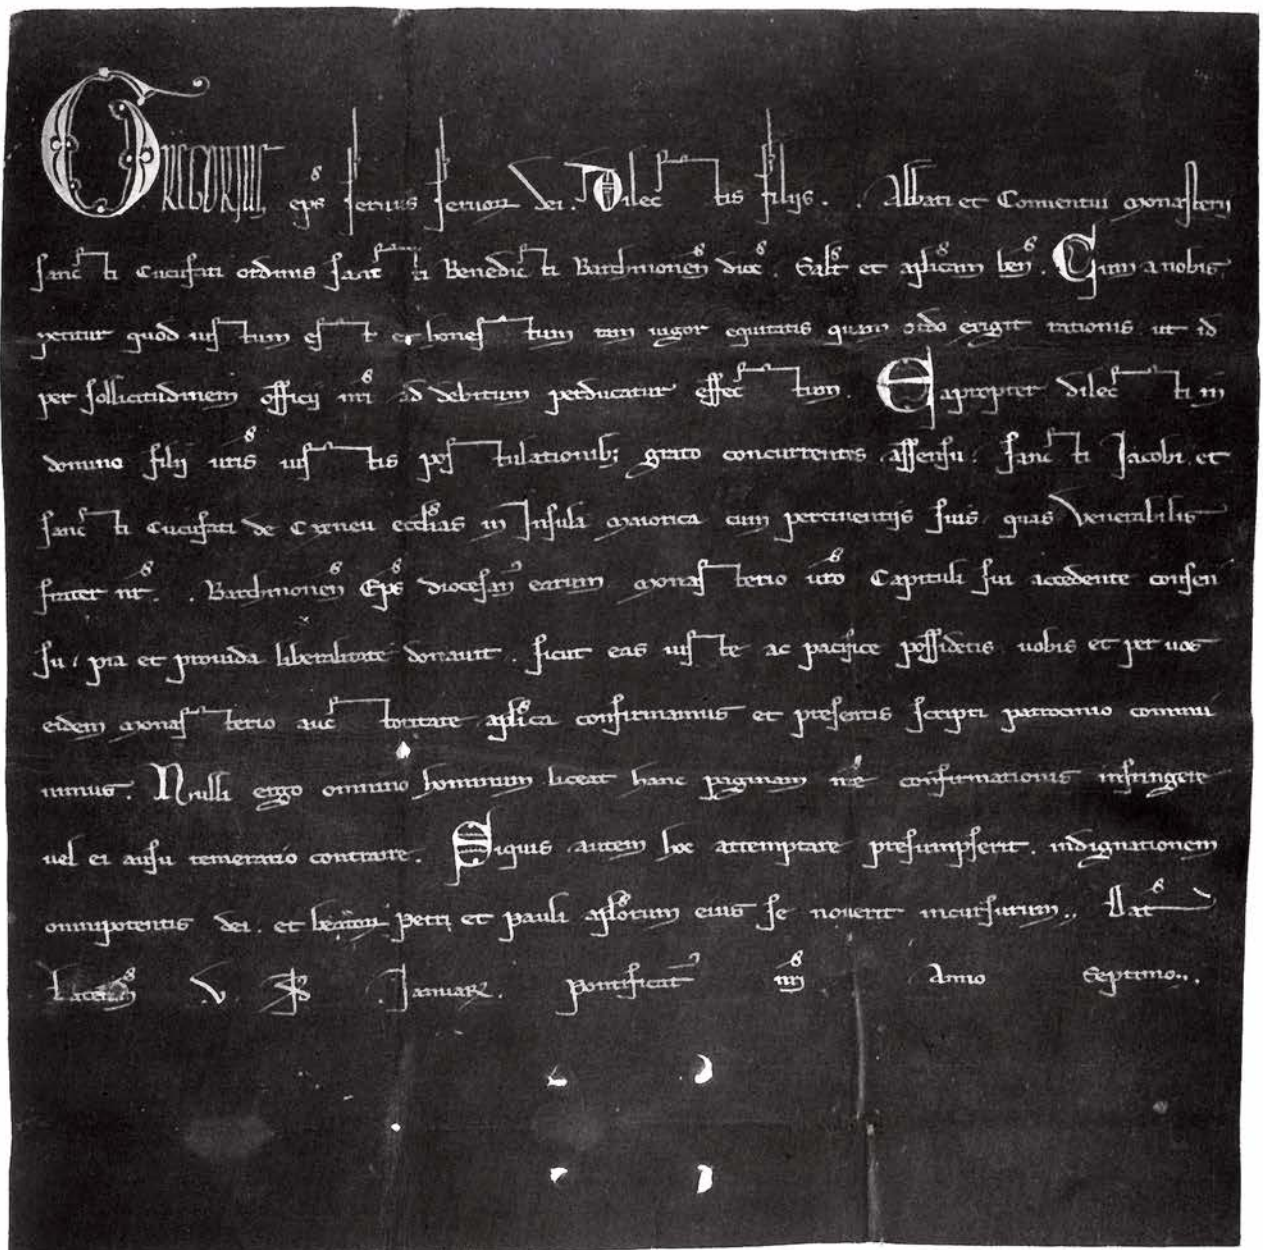 GREGORIUS eps servus servor dei. Dilectis filiis. . Abbati et Conventui monasterii
sancti Cucufati ordinis sancti Benedicti Barchinonen dioc. Salt et aplicam ben. Cum a nobis
petitur quod iustum est et honestum tam vigor equitatis quam ordo exigit rationis ut id
per sollicitudinem officij nri ad debitum perducatur effectum. Eapropter dilecti in
domino filij vris iustis postulationib; grato concurrentes assensu. sancti Jacobi et
sancti Cucufati de ecclias in Insula maiorica cum pertinentijs suis quas Venerabilis
frater nr. . Barchinonen Eps diocesan earum monasterio vro Capituli sui accedente consen
su / pia et provida liberalitate donavit. sicut eas iuste ac pacifice possidetis vobis et per vos
eidem monasterio auctoritate aplica confirmamus et presentis scripti patrocinio commu
nimus. Nulli ergo omnino hominum liceat hanc paginam nre confirmationis infringere
vel ei ausu temerario contraire. Siquis autem hoc attemptare presumpserit. indignationem
omnipotentis dei. et beator Petri et Pauli aplorum eius se noverit incursurum.. Dat
Lateran V Kl Januar. Pontificat nri Anno Septimo..